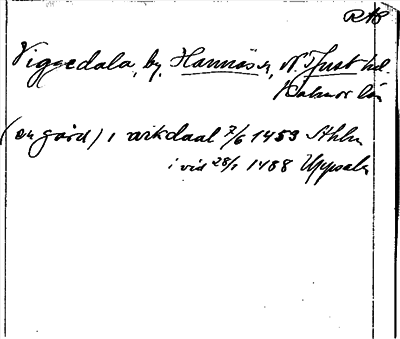 RAB
Viggedala, by, Hannäs sn, N. Tjust hd.
Kalmar län
(en gård) i wikdaal 7/6 1453 Sthlm
i vid 28/1 1488 Uppsala